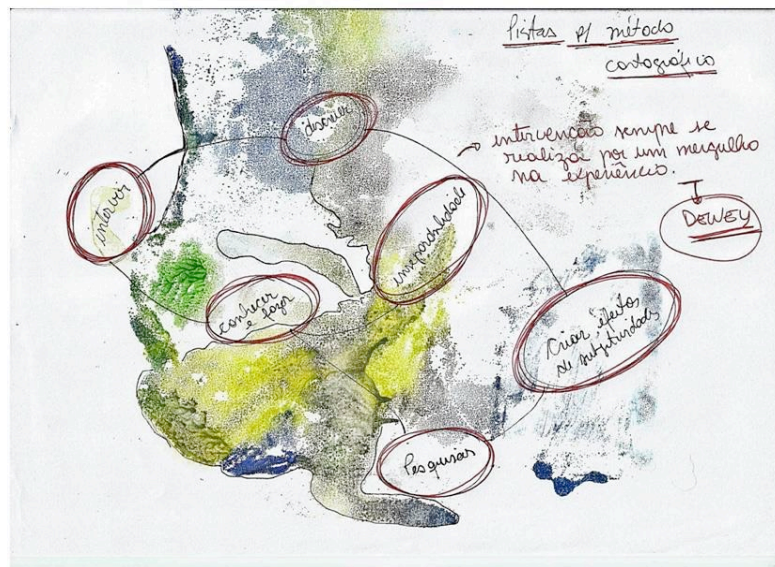 Pistas p/ método
cartográfico
discutir
intervenção sempre se
realiza por um mergulho
na experiência.
DEWEY
intervir
inseparabilidade
conhecer
e fazer
Criar efeitos
de subjetividade
Pesquisar